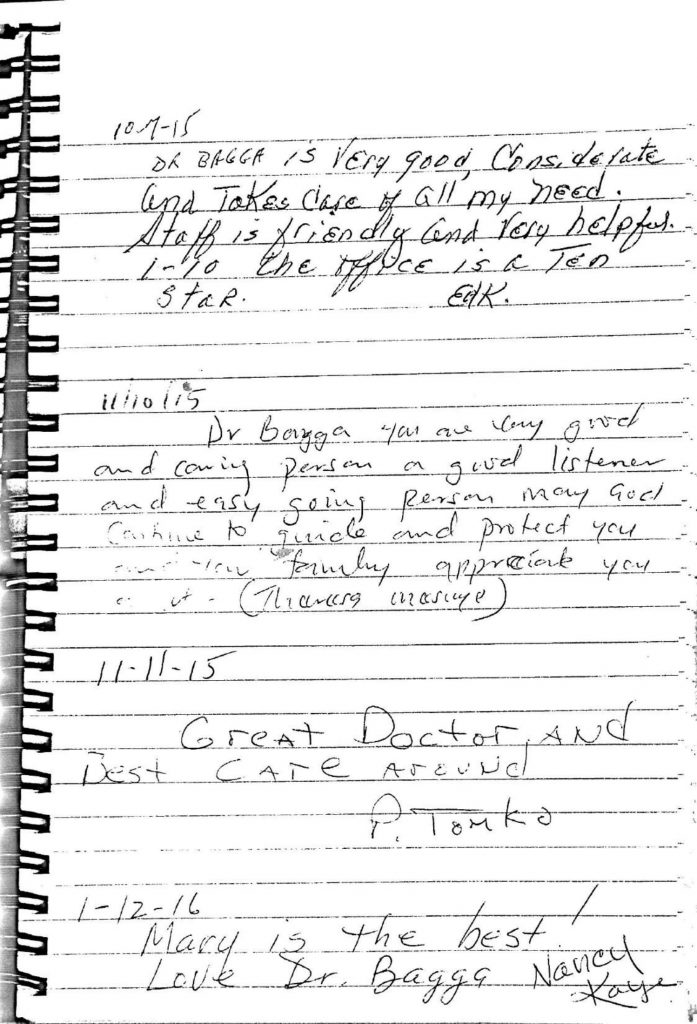 10-7-15
DR BAGGA is Very good, Considerate
and Takes Care of all my need.
Staff is friendly and Very helpful.
1-10 the office is a Ten
Star. EAK.
11/10/15
Dr Bagga you are very good
and caring person a good listener
and easy going person may God
Continue to guide and protect you
and your family appreciate you
a lot - (Theresa
11-11-15
Great Doctor, AND
Best CAre Around
P. Tomko
1-12-16
Mary is the best!
Love Dr. Bagga Nancy
Kaye